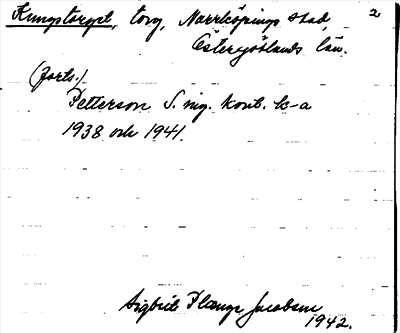 Kungstorget, torg, Norrköpings stad, 2
Östergötlands län.
(forts.)
Petterson S. ing. kont. k-a
1938 och 1941.
Sigbrit Plænge Jacobson
1942.